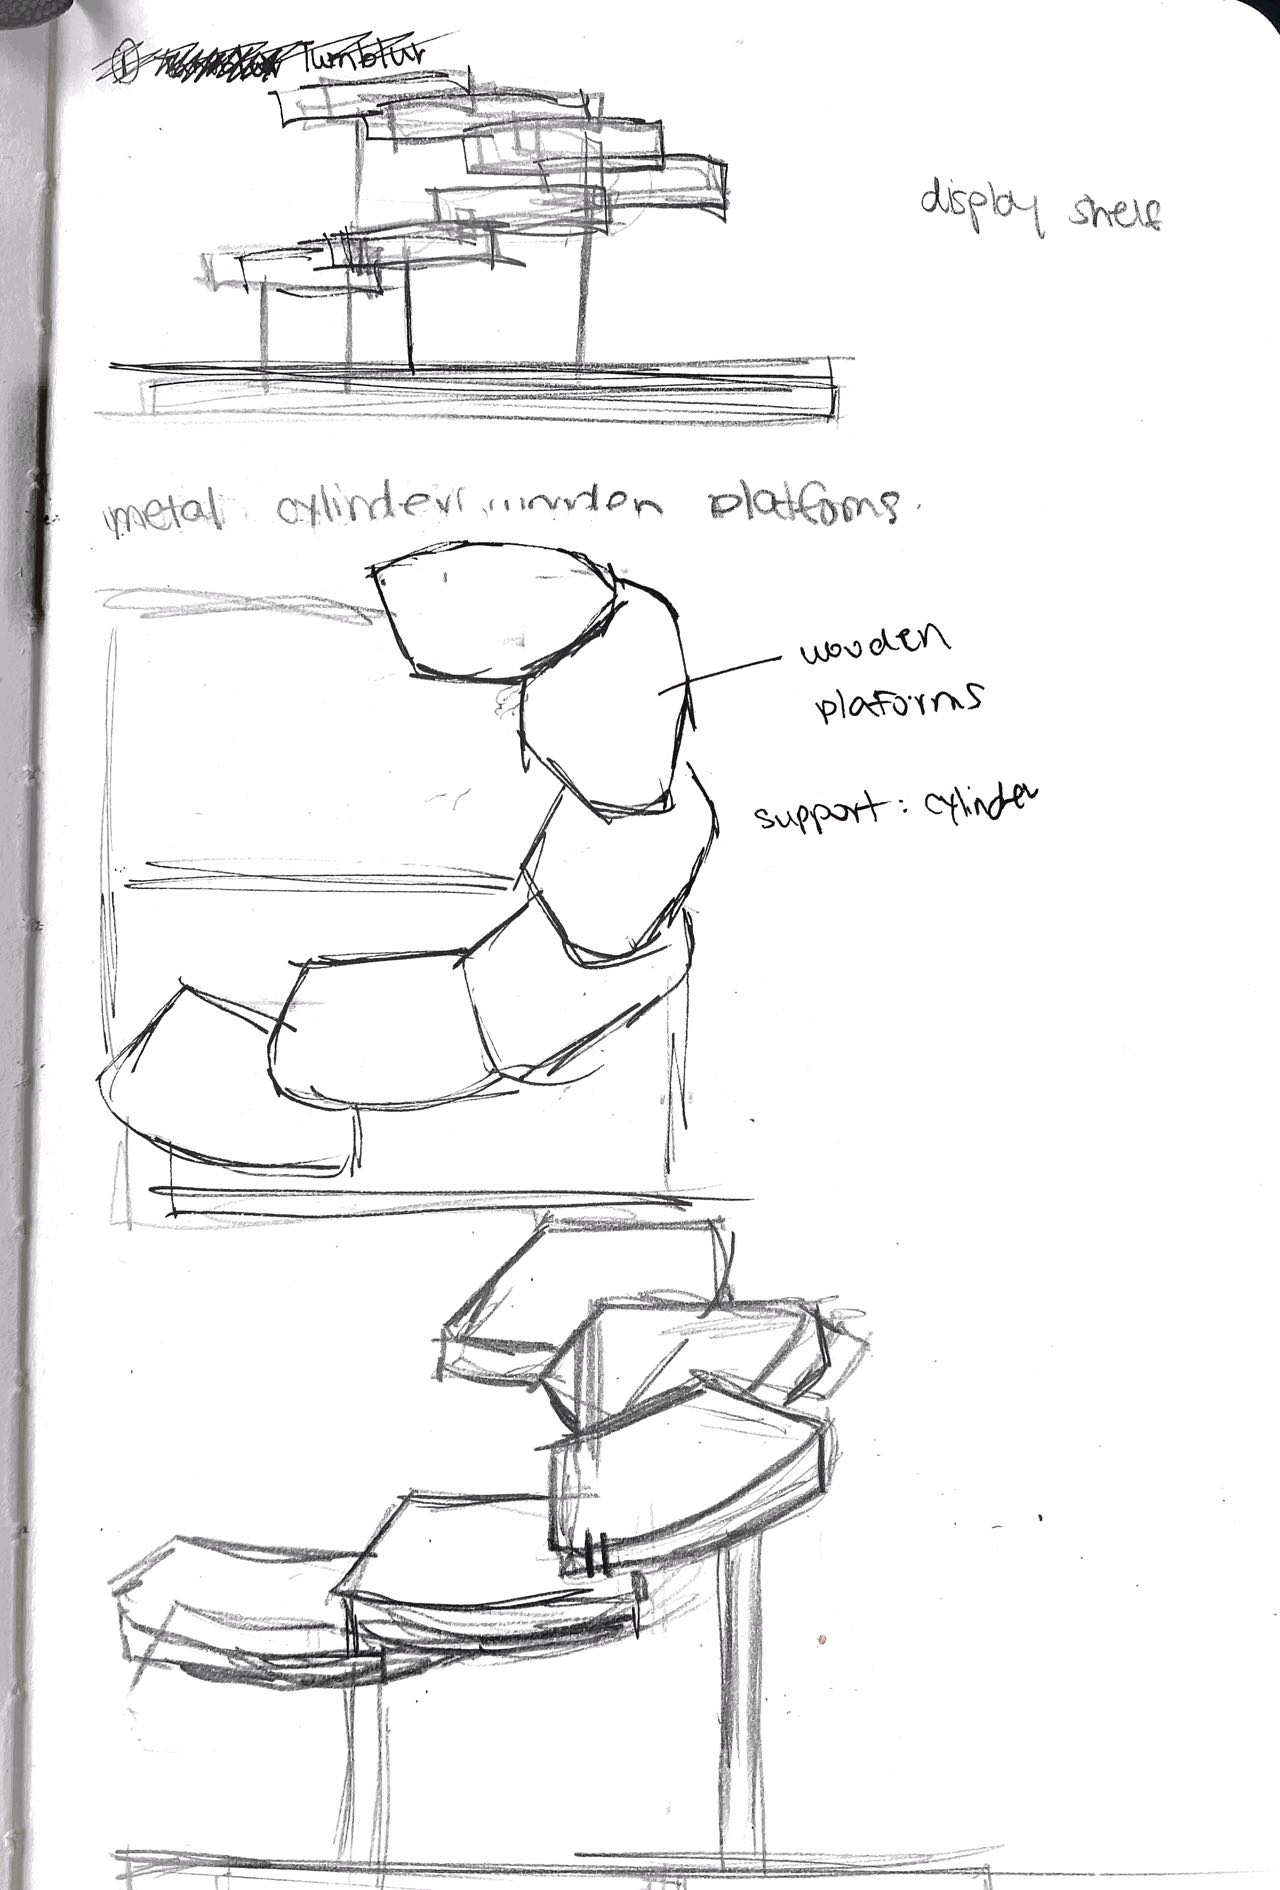 display shelf
metal cylinder wooden platforms.
wooden
plaforms
support: cylinder